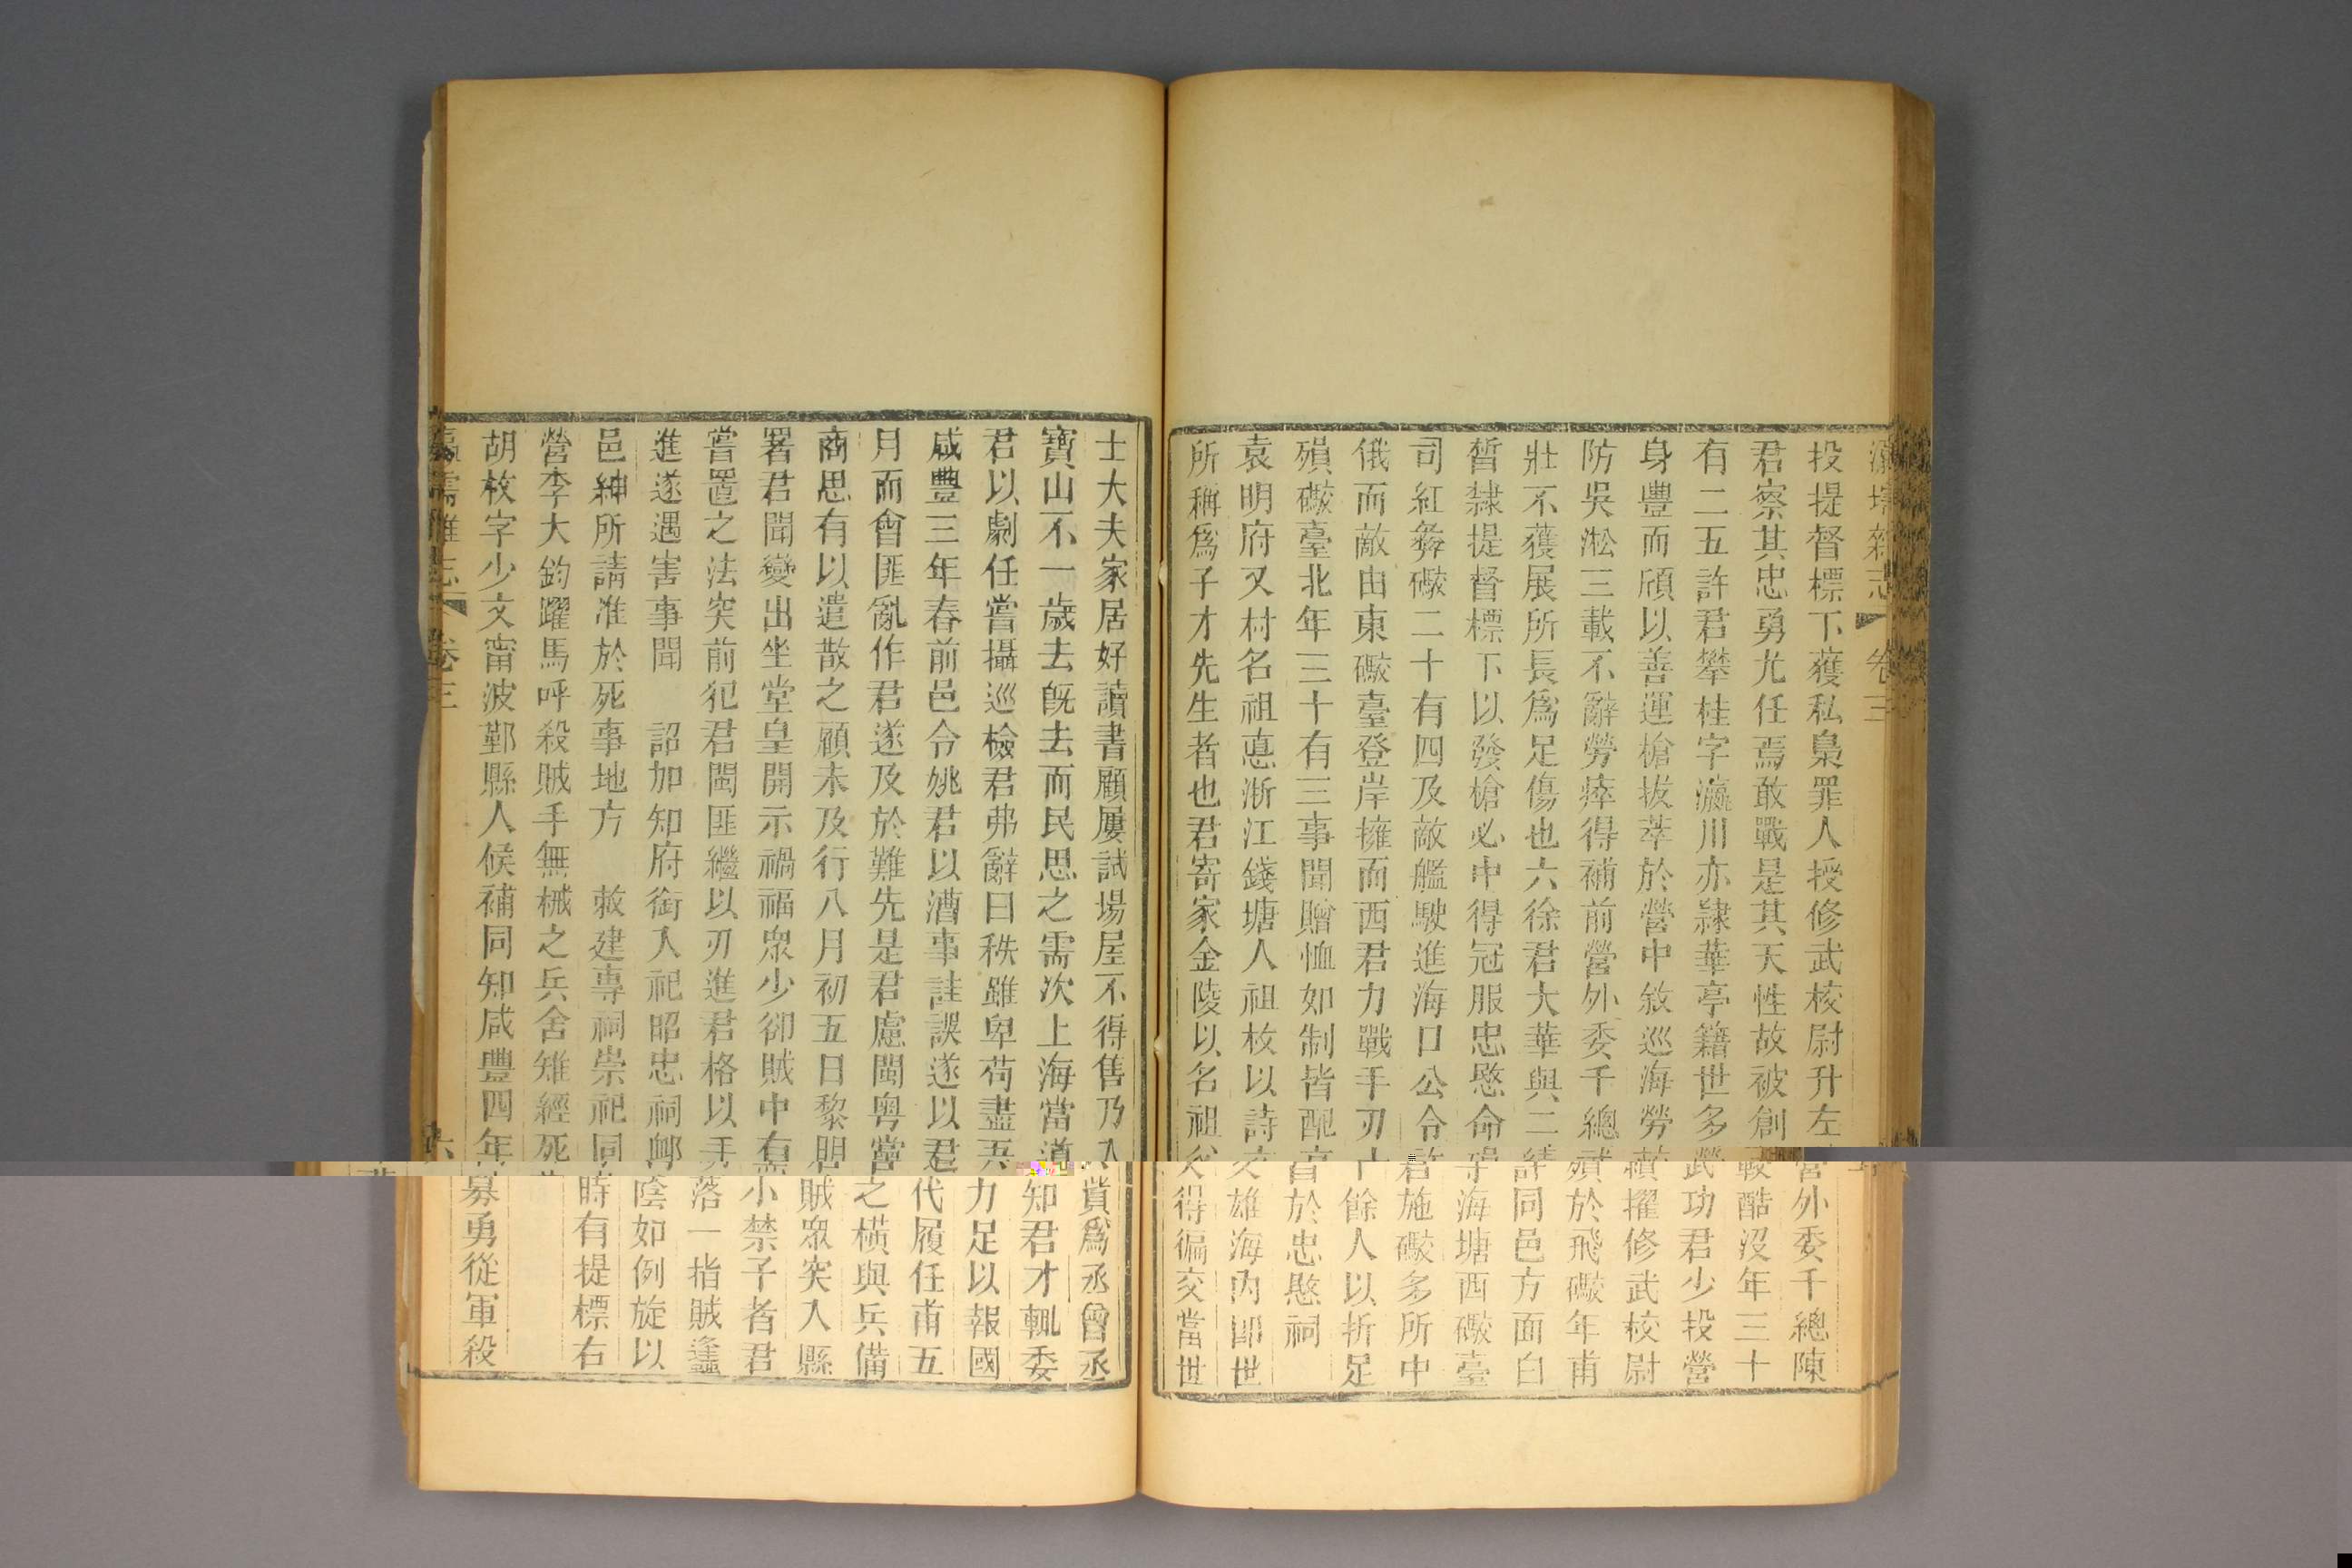 瀛壖雜志 卷三
投提督標下獲私梟罪人授修武校尉升左營外委千總陳
君察其忠勇尤任焉敢戰是其天性故被創較酷沒年三十
有二五許君攀桂字瀛川亦隷華亭籍世多武功君少投營
身豐而頎以善運槍拔萃於營中敘巡海勞績擢修武校尉
防吳淞三載不辭勞瘁得補前營外委千總殞於飛礮年甫
壯不獲展所長爲足傷也六徐君大華與二許同邑方面白
晳隸提督標下以發槍必中得冠服忠愍命守海塘西礮臺
司紅彝礮二十有四及敵艦駛進海口公令君施礮多所中
俄而敵由東礮臺登岸擁而西君力戰手刃十餘人以折足
殞礮臺北年三十有三事聞贈恤如制皆配享於忠愍祠
袁明府又村名祖悳浙江錢塘人祖枚以詩文雄海內卽世
所稱爲子才先生者也君寄家金陵以名祖父得徧交當世
士大夫家居好讀書顧屢試場屋不得售乃入貲爲丞曾丞
寶山不一歲去旣去而民思之需次上海當道知君才輒委
君以劇任嘗攝巡檢君弗辭曰秩雖卑苟盡吾力足以報國
咸豐三年春前邑令姚君以漕事詿誤遂以君代履任甫五
月而會匪亂作君遂及於難先是君慮閩粵黨之橫與兵備
商思有以遣散之顧未及行八月初五日黎明賊衆突入縣
署君聞變出坐堂皇開示禍福衆少卻賊中有小禁子者君
嘗置之法突前犯君閩匪繼以刃進君格以手落一指賊蠭
進遂遇害事聞 詔加知府銜入祀昭忠祠卹陰如例旋以
邑紳所請准於死事地方 敕建專祠崇祀同時有提標右
營李大鈞躍馬呼殺賊手無械之兵舍雉經死
胡枚字少文甯波鄞縣人候補同知咸豐四年募勇從軍殺
瀛壖雜志 卷三 六